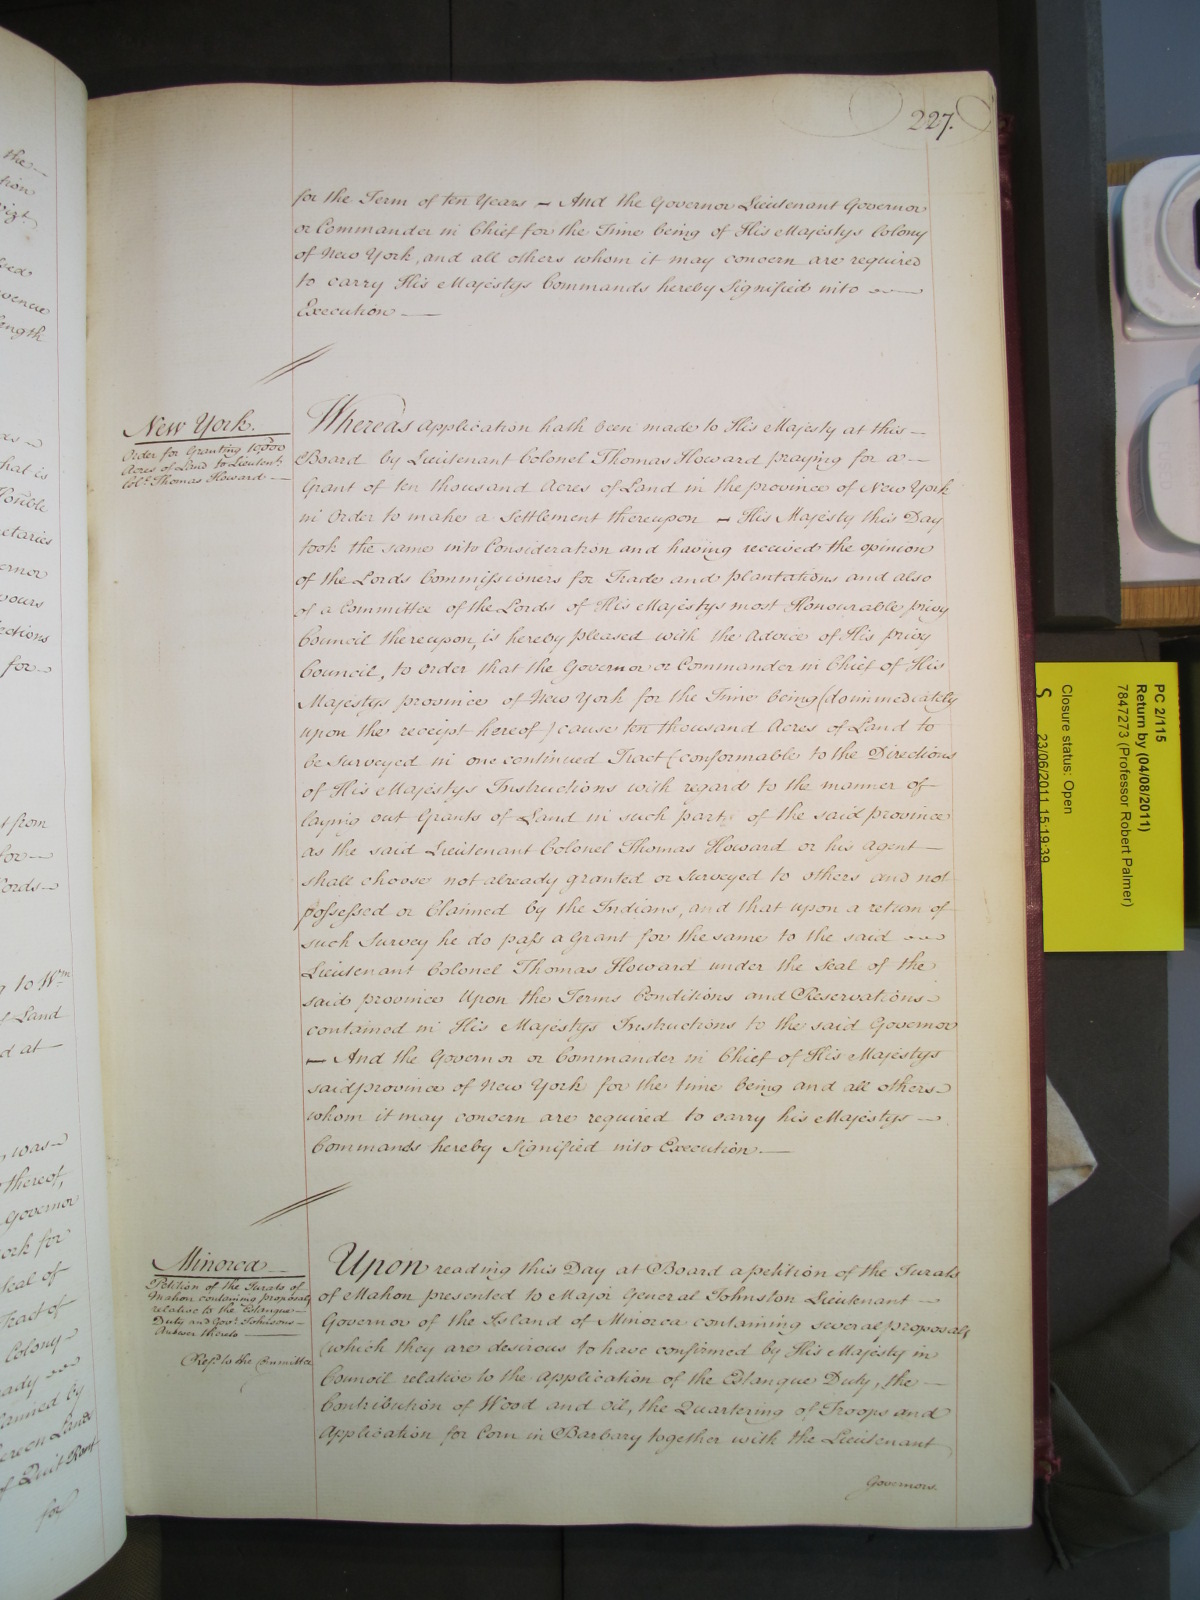 227.
for the Term of ten Years – And the Governor Lieutenant Governor
or Commander in Chief for the Time being of His Majestys Colony
of New York, and all others whom it may concern are required
to carry His Majestys Commands hereby Signified into
Execution —
New York.
Order for Granting 10,000
Acres of Land to Lieutent.
Col: Thomas Howard —
Whereas Application hath been made to His Majesty at this —
Board by Lieutenant Colonel Thomas Howard praying for a —
Grant of ten thousand Acres of Land in the province of New York
in Order to make a Settlement thereupon – His Majesty this Day
took the same into Consideration and having received the opinion
of the Lords Commissioners for Trade and plantations and also
of a Committee of the Lords of His Majestys most Honourable privy
Council thereupon, is hereby pleased with the Advice of His privy
Council, to order that the Governor or Commander in Chief of His
Majestys province of New York for the Time being (do immediately
upon the receipt hereof) cause ten thousand Acres of Land to
be Surveyed in one continued Tract (conformable to the Directions
of His Majestys Instructions with regard to the manner of
laying out Grants of Land in such parts of the said province
as the said Lieutenant Colonel Thomas Howard or his Agent —
shall choose not already granted or Surveyed to others and not
possessed or Claimed by the Indians, and that upon a return of
such Survey he do pass a Grant for the same to the said
Lieutenant Colonel Thomas Howard under the Seal of the
said province Upon the Terms Conditions and Reservations
contained in His Majestys Instructions to the said Governor
– And the Governor or Commander in Chief of His Majestys
said province of New York for the time being and all others
whom it may concern are required to carry his Majestys —
Commands hereby Signified into Execution. —
Minorca
Petition of the Jurats of
Mahon containing proposals
relative to the Estanque
Duty and Govr. Johnsons
Answer thereto
Refd. to the Committee
Upon reading this Day at Board a petition of the Jurats
of Mahon presented to Major General Johnston Lieutenant —
Governor of the Island of Minorca containing several proposals
(which they are desirous to have confirmed by His Majesty in
Council relative to the Application of the Estanque Duty, the —
Contribution of Wood and Oil, the Quartering of Troops and
Application for Corn in Barbary together with the Lieutenant
Governors
PC 2/115
Return by (04/08/2011)
7847273 (Professor Robert Palmer)
Closure status: Open
S 23/06/2011 15:19:39
the
ength
that is
etaries
ernor
yours
ections
for
t from
for
Lords
g to Wm
f Land
d at
, was
thereof,
Governor
ork for
Seal of
Tract of
Colony
ady
laimed by
of Quit Rent
for